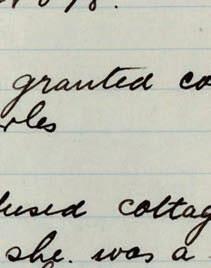 granted co
rles
fused cottag
she. was a